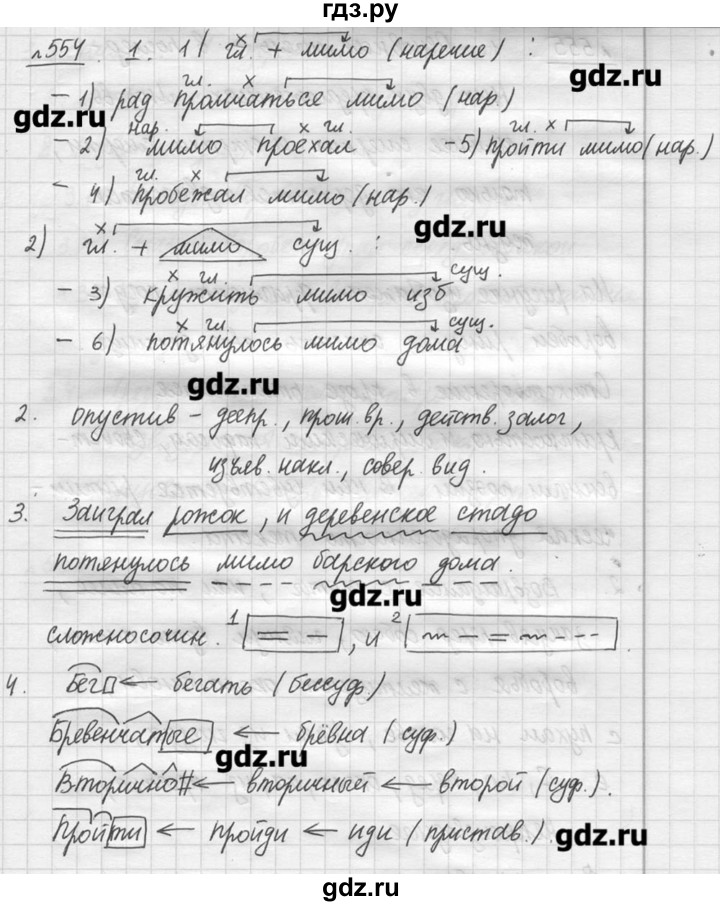 гдз.ру
№554. 1. 1) гл. + мимо (наречие) :
- 1) рад промчаться мимо (нар.)
гл.
gdz.ru
gdz.ru
2) мимо проехал - 5) пройти мимо (нар.)
нар. гл. гл.
- 4) пробежал мимо (нар.)
гл.
gdz.ru
2) гл. + мимо сущ. :
- 3) кружить мимо изб
гл. сущ.
- 6) потянулось мимо дома
гл. сущ.
gdz.ru
2. Опустив - деепр., прош. вр., действ. залог,
изъяв. накл., совер. вид.
3. Заиграл рожок, и деревенское стадо
потянулось мимо барского дома.
gdz.ru
сложносочин. 1 , и 2 .
4. Бег ← бегать (бессуф.)
Бревенчатые ← брёвна (суф.)
gdz.ru
Вторично# ← вторичный ← второй (суф.).
Пройти ← пройди ← иди (пристав.).
gdz.ru
gdz.ru